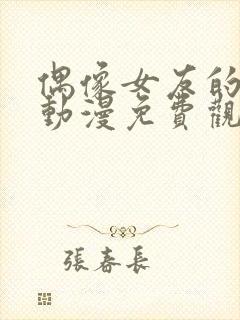 偶像女友的
動漫免費觀
張春長